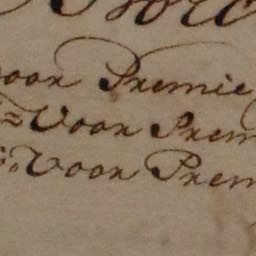 voor Premie
Voor Prem
Voor Prem